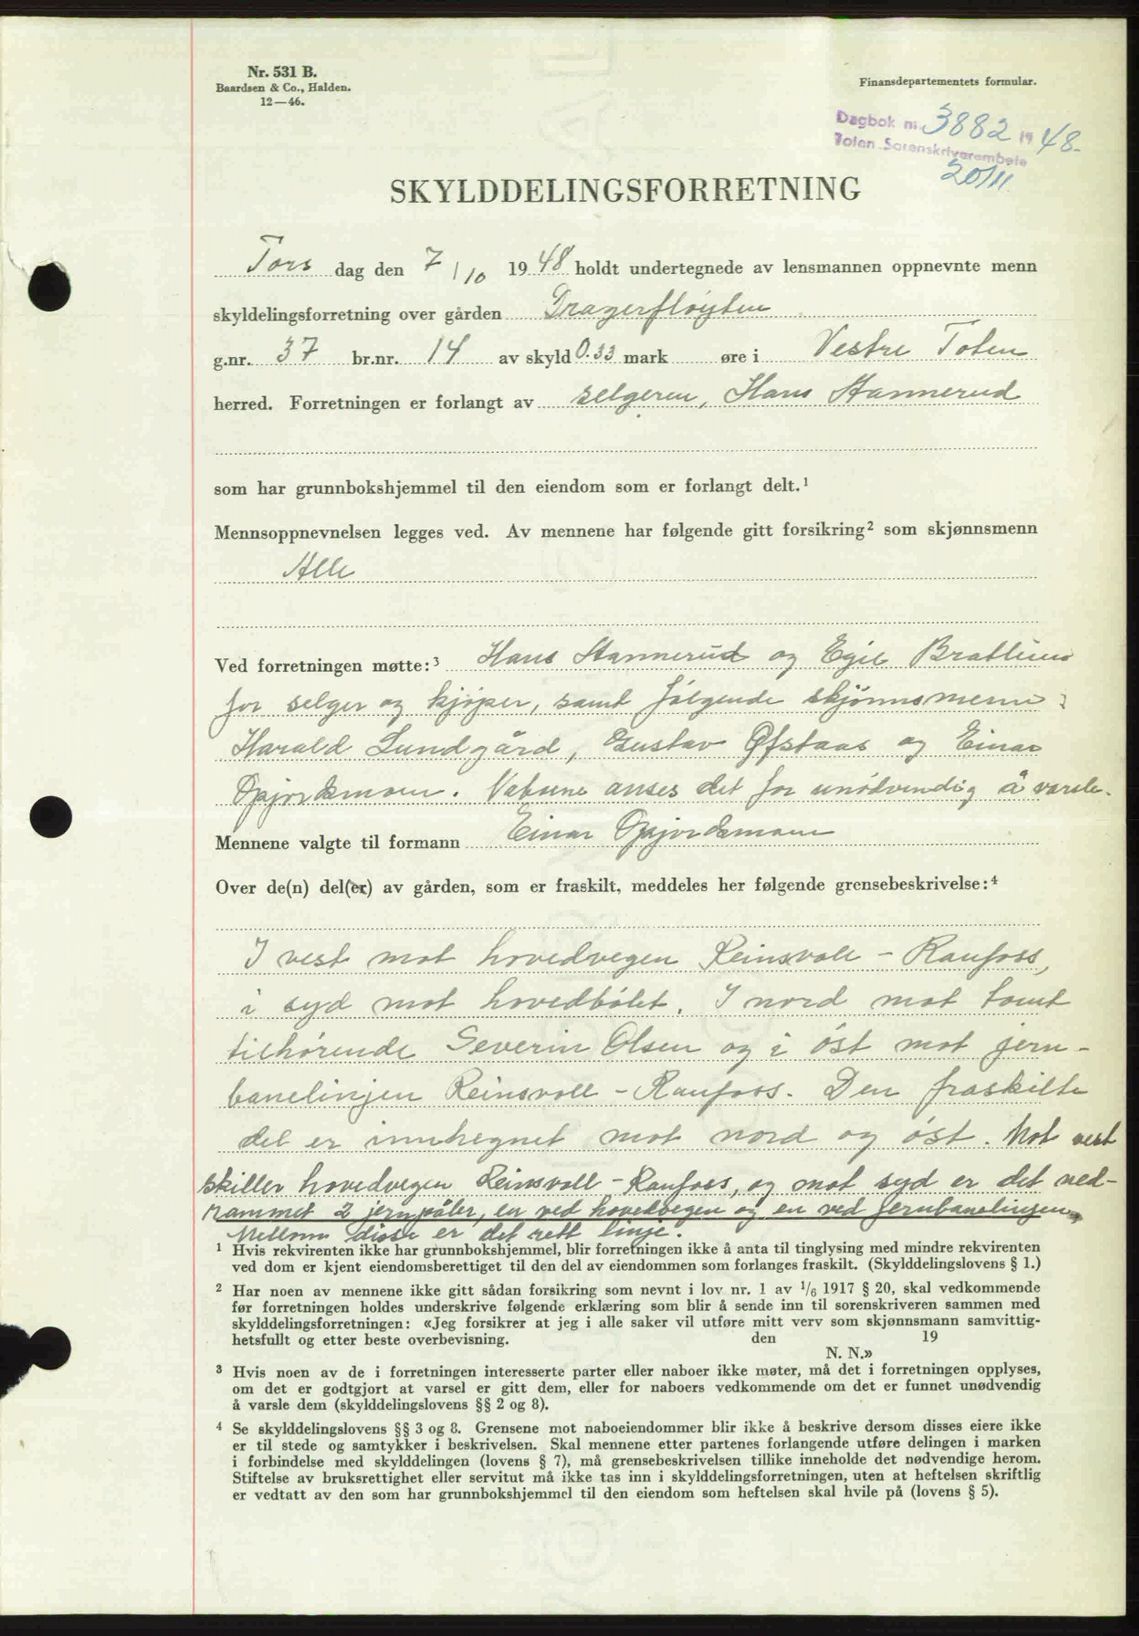 Nr. 531 B.
Baardsen & Co., Halden.
12—46.
Finansdepartementets formular.
Dagbok nr. 3882 19 48.
Toten Sorenskriverembete
20/11.
SKYLDDELINGSFORRETNING
Tors dag den 7/10 1948 holdt undertegnede av lensmannen oppnevnte menn
skyldelingsforretning over gården Dragerfløyten
g.nr. 37 br.nr. 14 av skyld 0.33 mark øre i Vestre Toten
herred. Forretningen er forlangt av selgeren, Hans Stannerud
som har grunnbokshjemmel til den eiendom som er forlangt delt.¹
Mennsoppnevnelsen legges ved. Av mennene har følgende gitt forsikring² som skjønnsmenn
Alle
Ved forretningen møtte:³ Hans Stannerud og Egil Brattlund
for selger og kjøper, samt følgende skjønnsmenn:
Harald Lundgård, Gustav Øfstaas og Einar
Gjørdsmoen. Naboene anses det for unødvendig å varsle.
Mennene valgte til formann Einar Gjørdsmoen
Over de(n) del(er) av gården, som er fraskilt, meddeles her følgende grensebeskrivelse:⁴
I vest mot hovedvegen Reinsvoll - Raufoss,
i syd mot hovedbølet. I nord mot tomt
tilhørende Severin Olsen og i øst mot jern-
banelinjen Reinsvoll - Raufoss. Den fraskilte
del er innhegnet mot nord og øst. Mot vest
skiller hovedvegen Reinsvoll - Raufoss, og mot syd er det ned-
rammet 2 jernpåler, en ved hovedvegen og en ved jernbanelinjen,
Mellom disse er det rett linje.
¹ Hvis rekvirenten ikke har grunnbokshjemmel, blir forretningen ikke å anta til tinglysing med mindre rekvirenten
ved dom er kjent eiendomsberettiget til den del av eiendommen som forlanges fraskilt. (Skylddelingslovens § 1.)
² Har noen av mennene ikke gitt sådan forsikring som nevnt i lov nr. 1 av 1/6 1917 § 20, skal vedkommende
før forretningen holdes underskrive følgende erklæring som blir å sende inn til sorenskriveren sammen med
skylddelingsforretningen: «Jeg forsikrer at jeg i alle saker vil utføre mitt verv som skjønnsmann samvittig-
hetsfullt og etter beste overbevisning. den 19
N. N.»
³ Hvis noen av de i forretningen interesserte parter eller naboer ikke møter, må det i forretningen opplyses,
om det er godtgjort at varsel er gitt dem, eller for naboers vedkommende om det er funnet unødvendig
å varsle dem (skylddelingslovens §§ 2 og 8).
⁴ Se skylddelingslovens §§ 3 og 8. Grensene mot naboeiendommer blir ikke å beskrive dersom disses eiere ikke
er til stede og samtykker i beskrivelsen. Skal mennene etter partenes forlangende utføre delingen i marken
i forbindelse med skylddelingen (lovens § 7), må grensebeskrivelsen tillike inneholde det nødvendige herom.
Stiftelse av bruksrettighet eller servitut må ikke tas inn i skylddelingsforretningen, uten at heftelsen skriftlig
er vedtatt av den som har grunnbokshjemmel til den eiendom som heftelsen skal hvile på (lovens § 5).